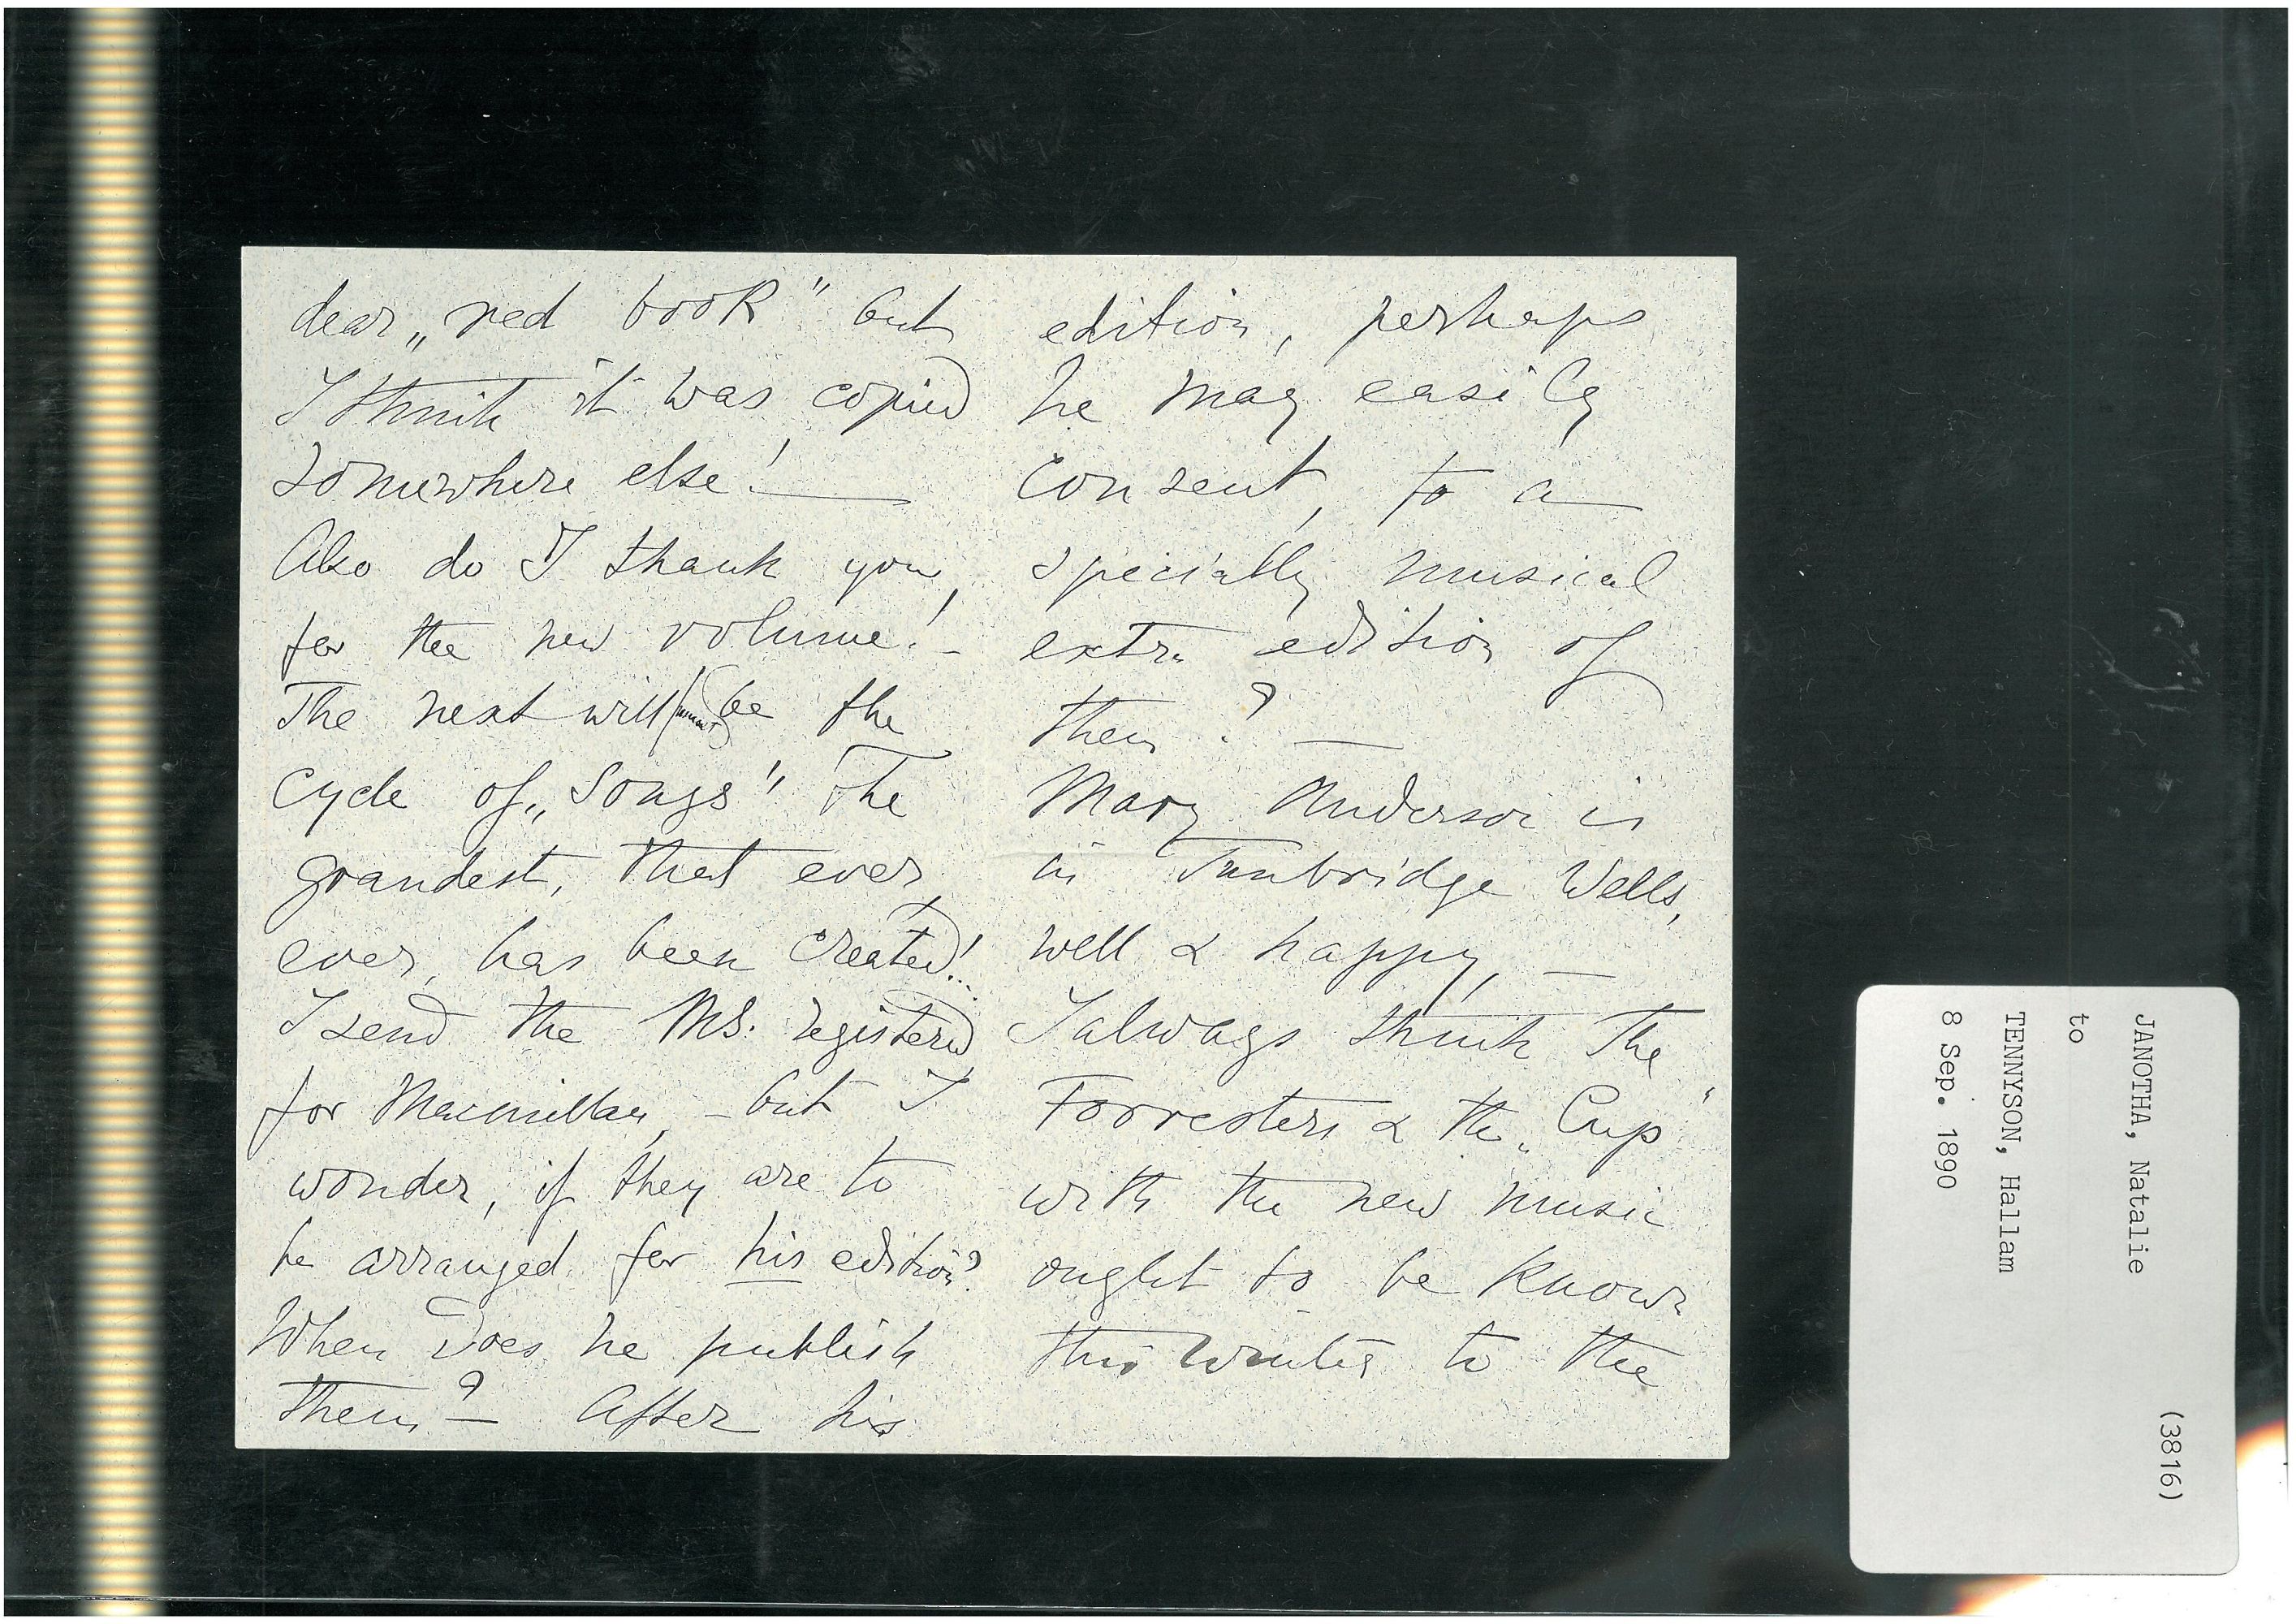 dear „red book" but
I think it was copied
somewhere else! —
Also do I thank you,
for the new volume! -
The next will be the
cycle of „Songs" The
grandest, that ever,
ever, has been created!...
I send the MS. registered
for Macmillan, - but I
wonder, if they are to
be arranged for his edition?
When does he publish
them? — After his
edition, perhaps
he may easily
consent, to a
specially musical
extra edition of
them? —
Mary Anderson is
in Tunbridge Wells,
well & happy, —
I always think The
Forresters & the „Cup"
with the new music
ought to be known
this winter to the
JANOTHA, Natalie (3816)
to
TENNYSON, Hallam
8 Sep. 1890